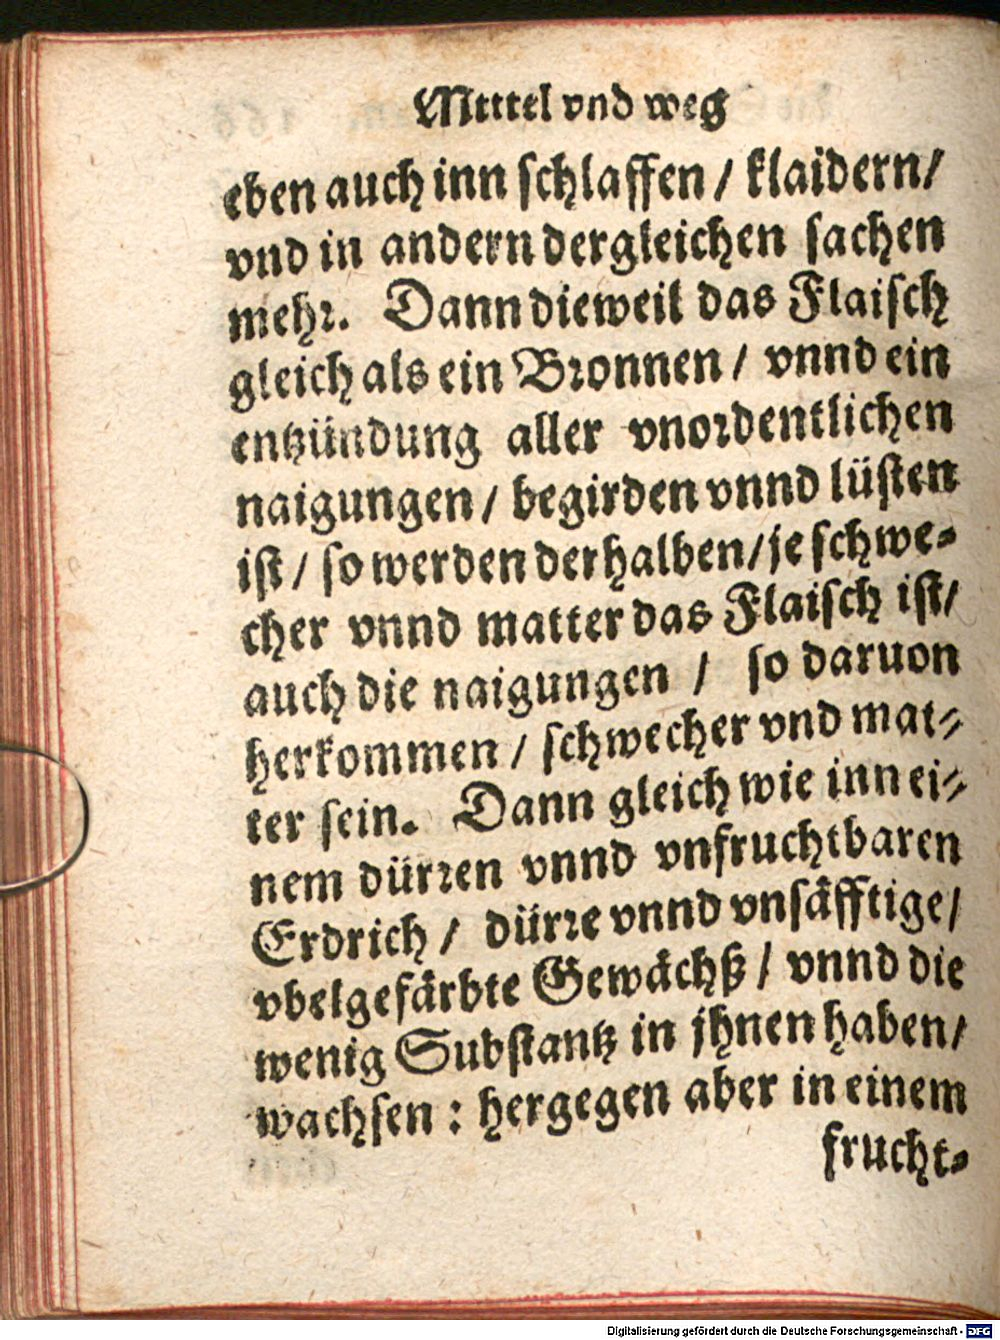 Mittel vnd weg
eben auch inn schlaffen / klaidern/
vnd in andern dergleichen sachen
mehr. Dann dieweil das Flaisch
gleich als ein Bronnen / vnnd ein
entzündung aller vnordentlichen
naigungen / begirden vnnd lüsten
ist / so werden derhalben/je schwe-
cher vnnd matter das Flaisch ist/
auch die naigungen / so daruon
herkommen / schwecher vnd mat-
ter sein. Dann gleich wie inn ei-
nem dürren vnnd vnfruchtbaren
Erdrich / dürre vnnd vnsäfftige/
vbelgefärbte Gewächß / vnnd die
wenig Substantz in jhnen haben/
wachsen : hergegen aber in einem
frucht-
Digitalisierung gefördert durch die Deutsche Forschungsgemeinschaft - DFG